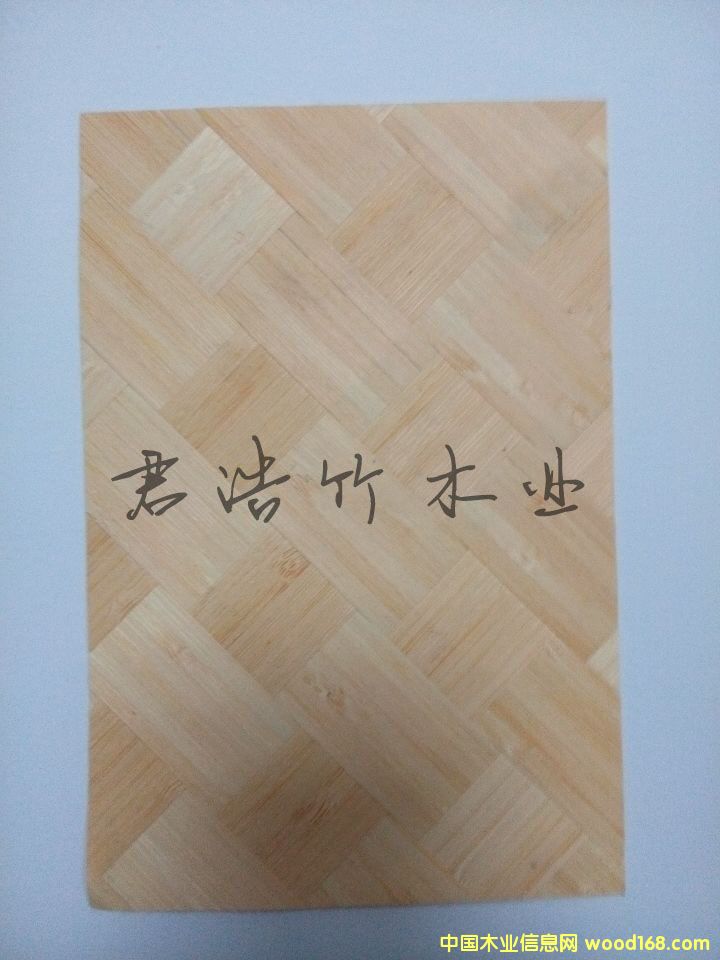 君浩竹木业
中国木业信息网 wood168.com